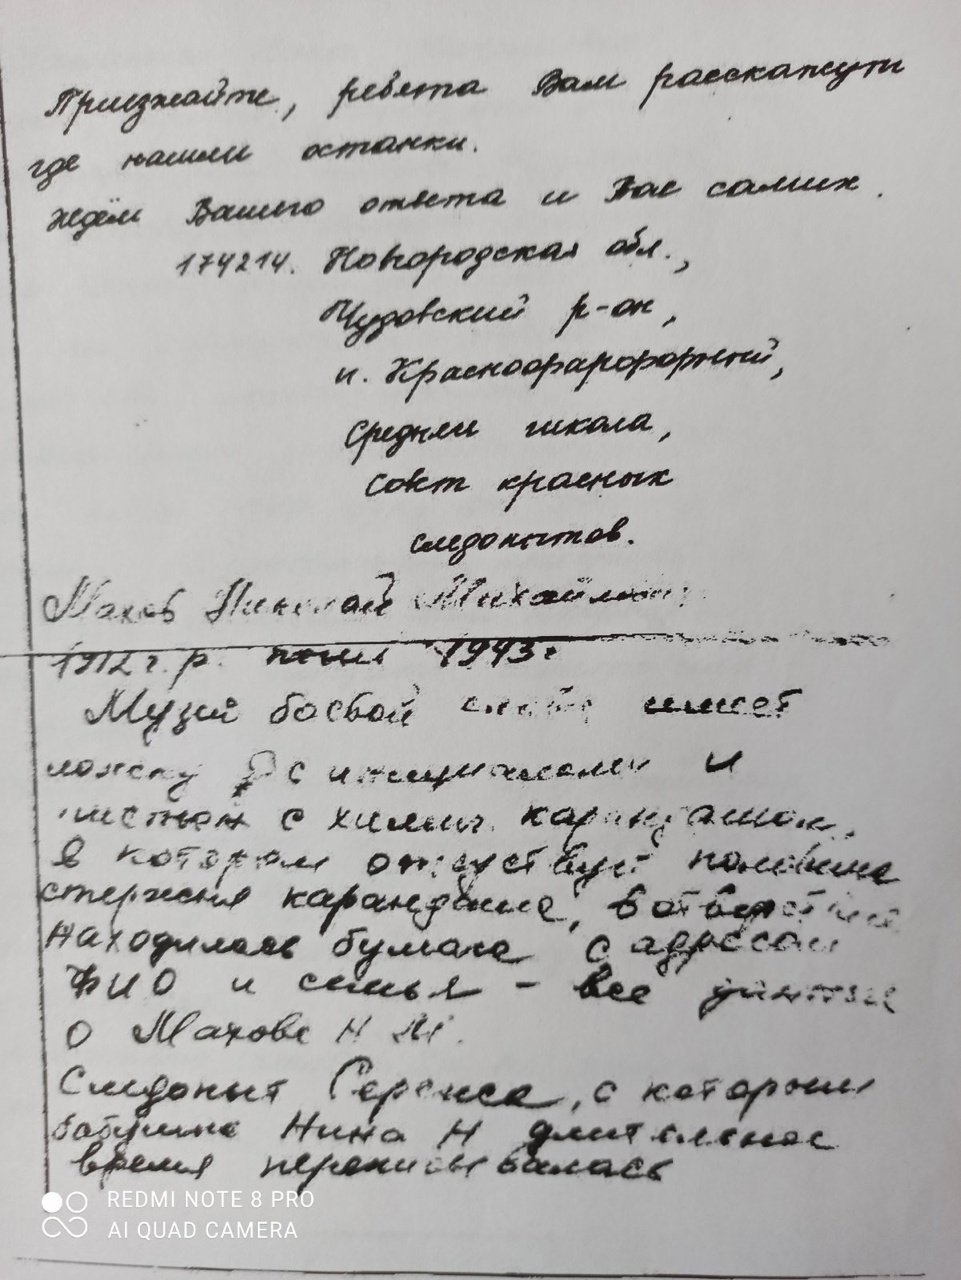 Приезжайте, ребята Вам расскажут
где нашли останки.
Ждём Вашего ответа и Вас самих.
174214. Новгородская обл.,
Чудовский р-он,
п. Краснофарфорный,
Средняя школа,
совет красных
следопытов.
Махов Николай Михайлович
1912 г.р. 1943 г
Музей боевой славы имеет
ложку с инициалами и
с химич. карандашом,
в котором отсутствует половина
стержня карандаша, в отверстии
находилась бумага с адресом
ФИО и семья - все данные
о Махове Н М.
Следопыт, с которым
бабушка Нина Н длительное
время переписывалась
REDMI NOTE 8 PRO
AI QUAD CAMERA